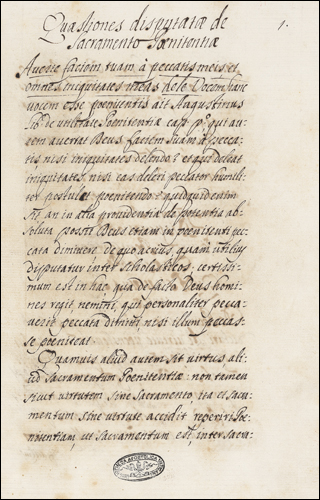 Quæstiones disputatæ de
1.
Sacramento Pœnitentiæ
Averte faciem tuam à peccatis meis, et
omnes iniquitates meas dele. Docem hanc
vocem esse pœnitentis ait Augustinus
lib. de utilitate Pœnitentiæ cap. pº. qui au-
tem avertat Deus faciem suam à pecca-
tis nisi iniquitates delendo? et qui deleat
iniquitates, nisi eas deleri peccator humili-
ter postulat pœnitendo? quidquid enim
sit, an in alia providentia de potentia ab-
soluta possit Deus etiam in pœnitenti pec-
cata dimittere, de quo acrius, quam utilius
disputatur inter scholasticos: certissi-
mum est in hac qua de facto Deus homi-
nes regit nemini, qui personaliter pecca-
verit peccata dimitti, nisi illum peccas-
se pœniteat.
Quamvis aliud autem sit virtus ali-
ud Sacramentum Pœnitentiæ: non tamen
sicut virtutem sine Sacramento, ita et sacra-
mentum sine virtute accidit reperiri Pœ-
nitentiam, ut sacramentum est, inter sacra-